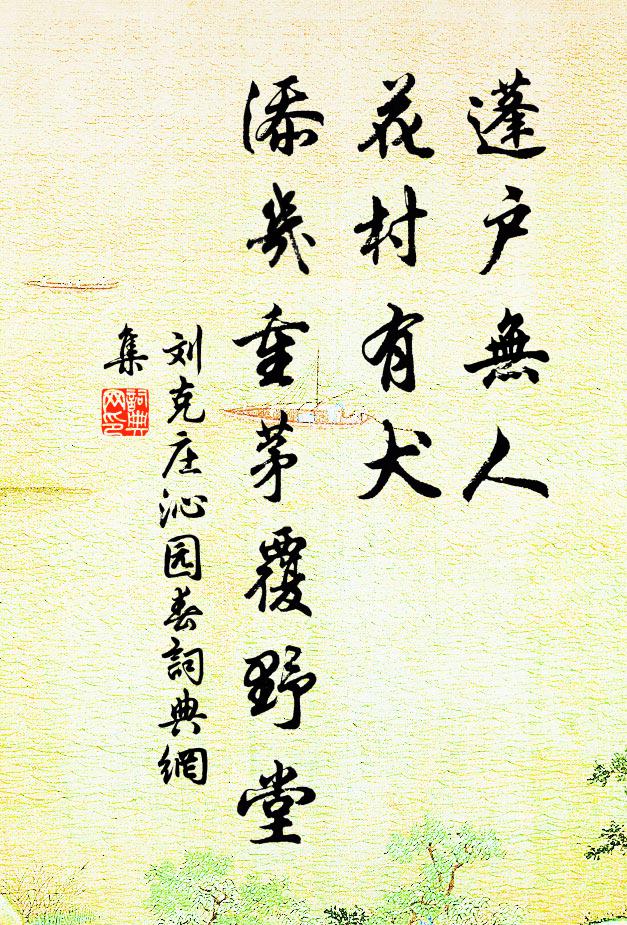 蓬户無人
花村有犬
添幾重茅覆野堂
刘克庄沁园春詞典網
集
詞典
网印